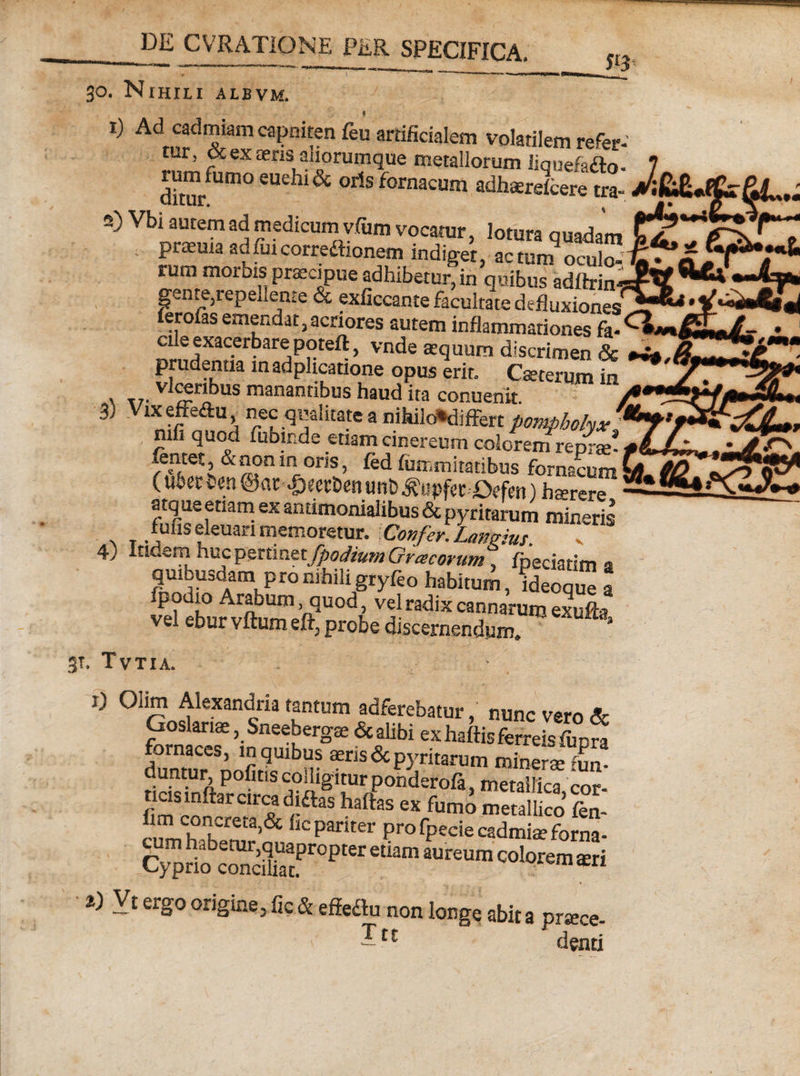 DE CVRATIONE PER SPECIFICA. 513
30. NIHILI ALBVM.
1) Ad cadmiam capniten ſeu artificialem volatilem refer-
tur, & ex æris aliorumque metallorum liquefacto-
rum fumo euehi & oris fornacum adhæreſcere tra-
ditur.
2) Vbi autem ad medicum vſum vocatur, lotura quadam
præuia ad ſui correctionem indiget, ac tum oculo-
rum morbis præcipue adhibetur, in quibus adſtrin-
gente, repellente & exſiccante facultate defluxiones
ſeroſas emendat, acriores autem inflammationes fa-
cile exacerbare poteſt, vnde æquum discrimen &
prudentia in adplicatione opus erit. Cæterum in
vlceribus manantibus haud ita conuenit.
3) Vix effectu, nec qualitate a nihilo differt pompholyx,
niſi quod ſubinde etiam cinereum colorem repræ-
ſentet, & non in oris, ſed ſummitatibus fornacum
(über den Gar-Heerden und Kupfer-Oefen) hærere,
atque etiam ex antimonialibus & pyritarum mineris
fuſis eleuari memoretur. Confer. Langius.
4) Itidem huc pertinet ſpodium Græcorum, ſpeciatim a
quibusdam pro nihili gryſeo habitum, ideoque a
ſpodio Arabum, quod, vel radix cannarum exuſta,
vel ebur vſtum eſt, probe discernendum.
31. TVTIA.
1) Olim Alexandria tantum adferebatur, nunc vero &
Goslariæ, Sneebergæ & alibi ex haſtis ferreis ſupra
fornaces, in quibus æris & pyritarum mineræ fun-
duntur, poſitis colligitur ponderoſa, metallica, cor-
ticis inſtar circa dictas haſtas ex fumo metallico ſen-
ſim concreta, & ſic pariter pro ſpecie cadmiæ forna-
cum habetur, quapropter etiam aureum colorem æri
Cyprio conciliat.
2) Vt ergo origine, ſic & effectu non longe abit a præce-
Ttt denti